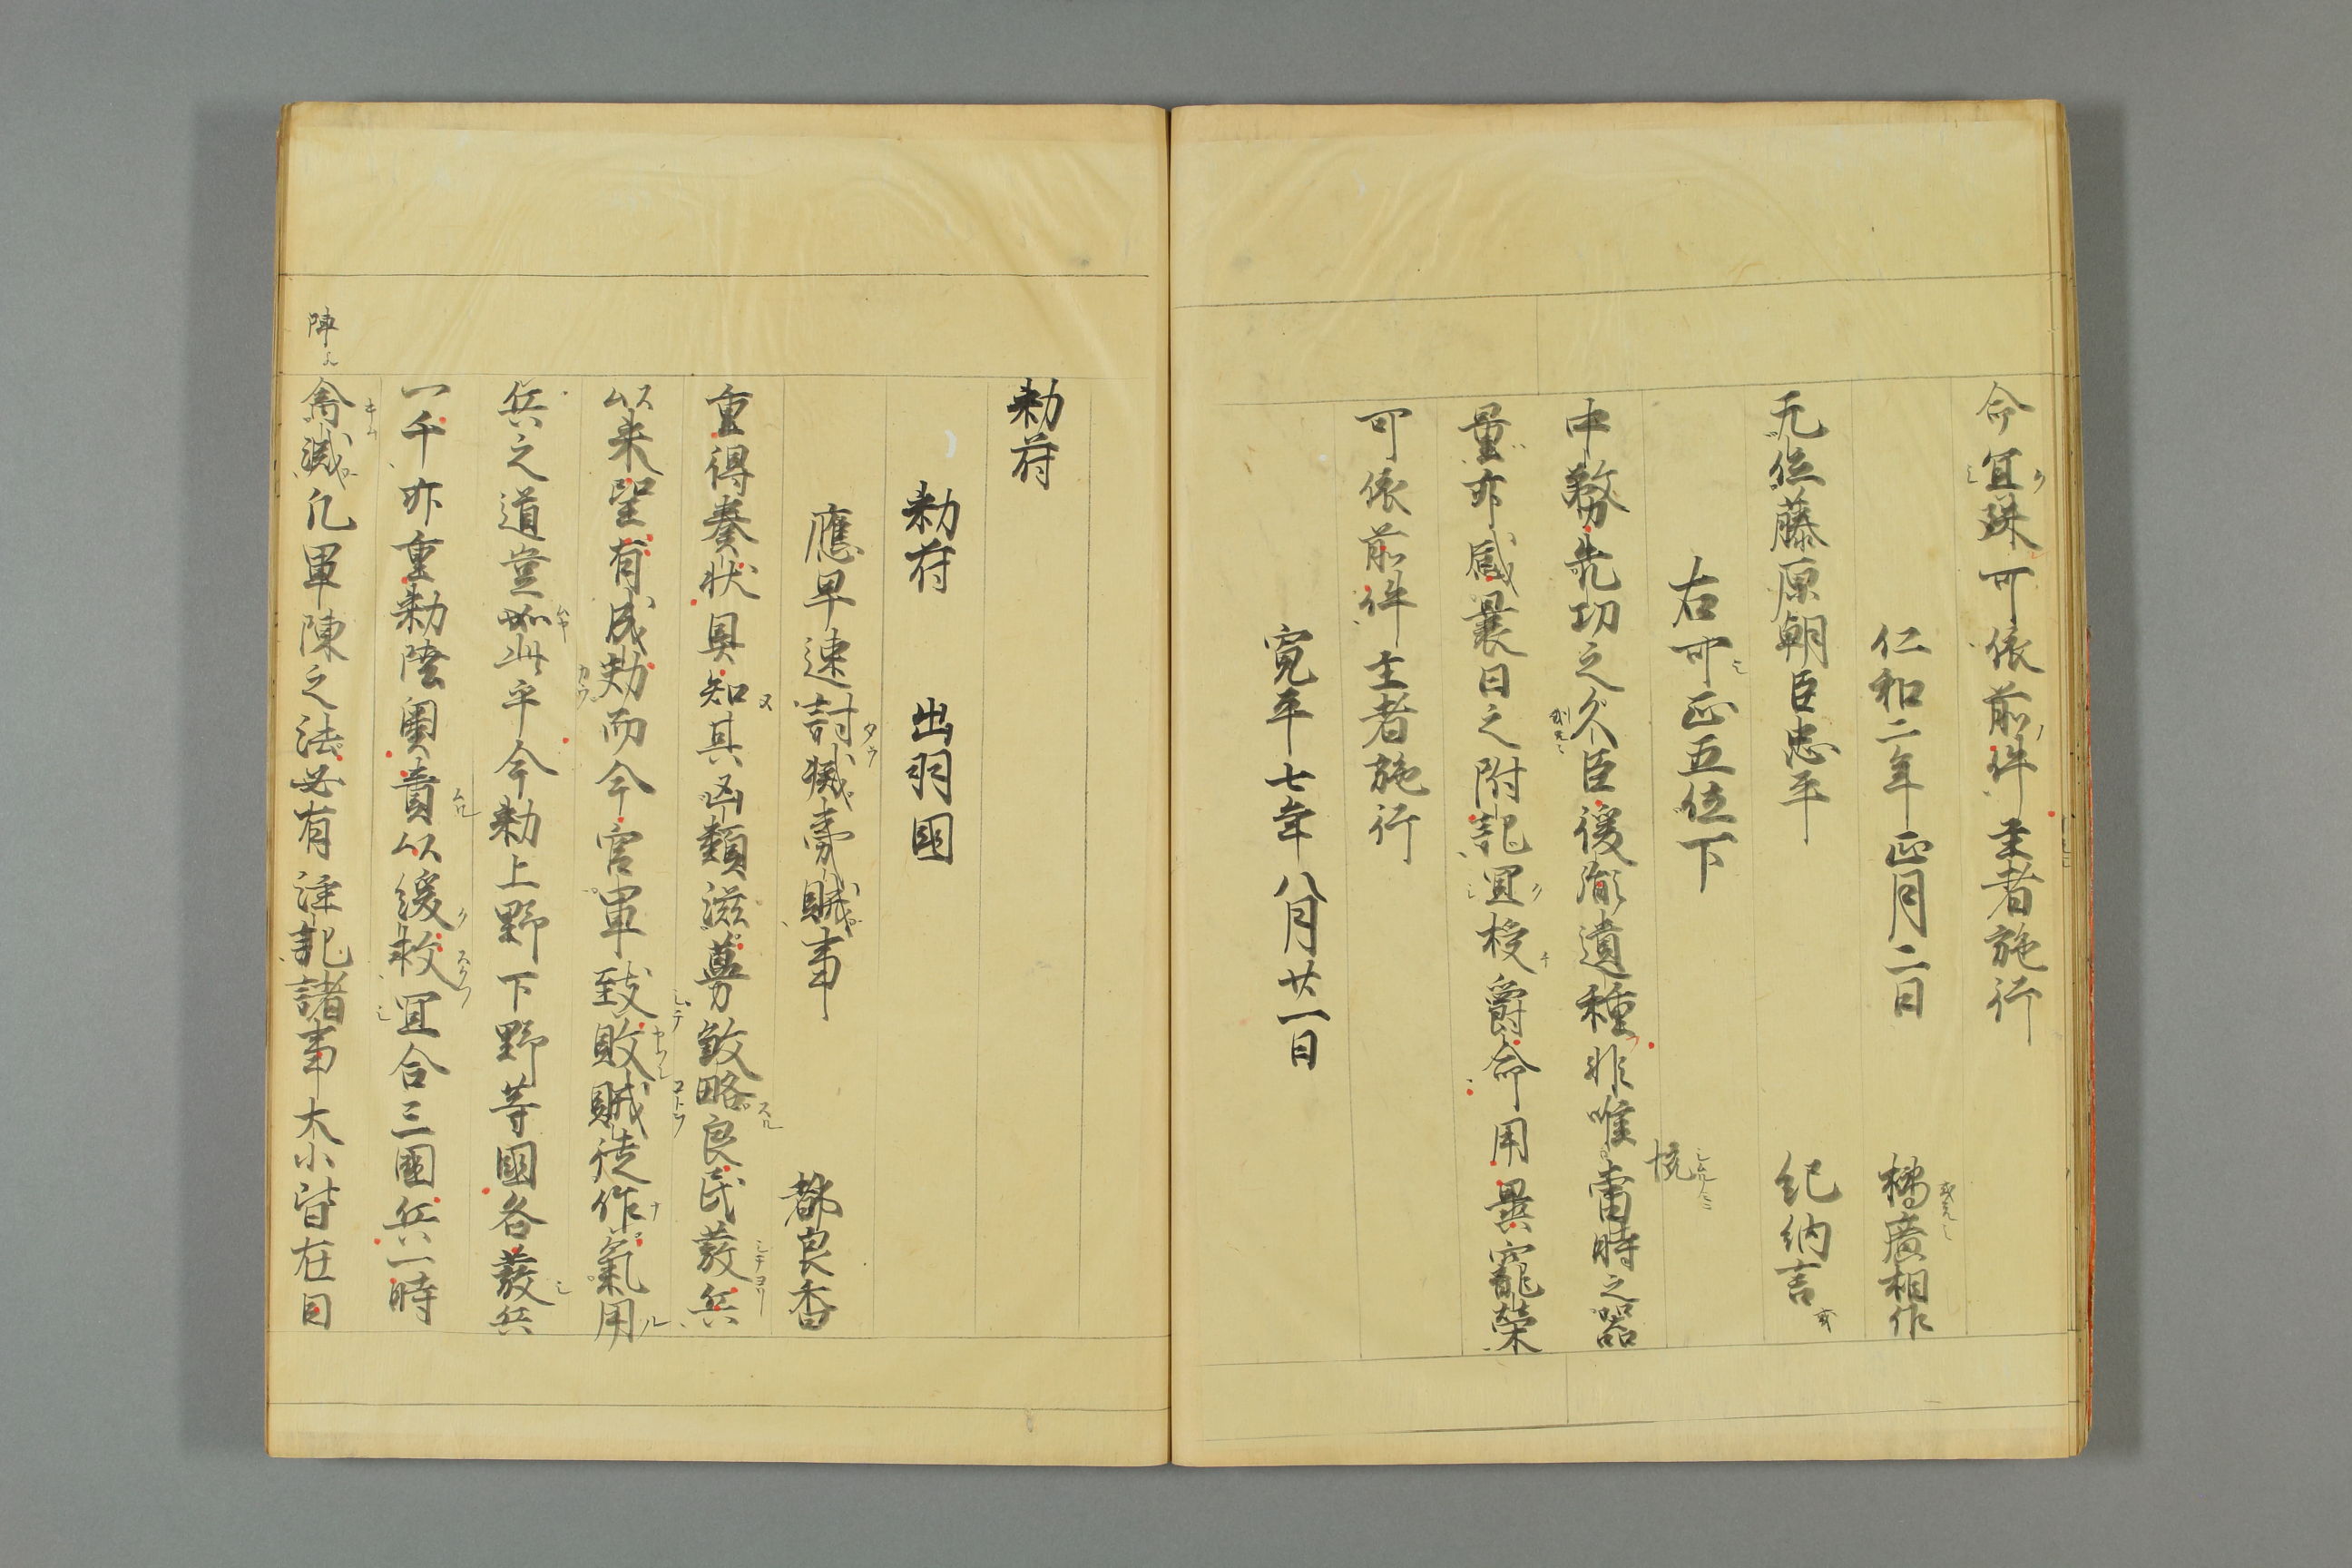 命宜殊可依前件主者施行
仁和二年正月二日 橘廣相作
无位藤原朝臣忠平 紀納言
右可正五位下
中務先功之後胤遺種非唯當時之器
量亦感曩日之附託宜授爵命用異寵榮
可依前件主者施行
寛平七年八月廿一日
勅符
勅符 出羽國
應早速討滅夷賊事 都良香
重得奏状具知其凶類滋蔓殺略良民發兵
以来望有成効而今官軍致敗賊徒作氣用
兵之道豈如此乎今勅上野下野等國各發兵
一千亦重勅陸奥責以緩救宜合三國兵一時
禽滅凡軍陳之法必有注記諸事大小皆在目
陣